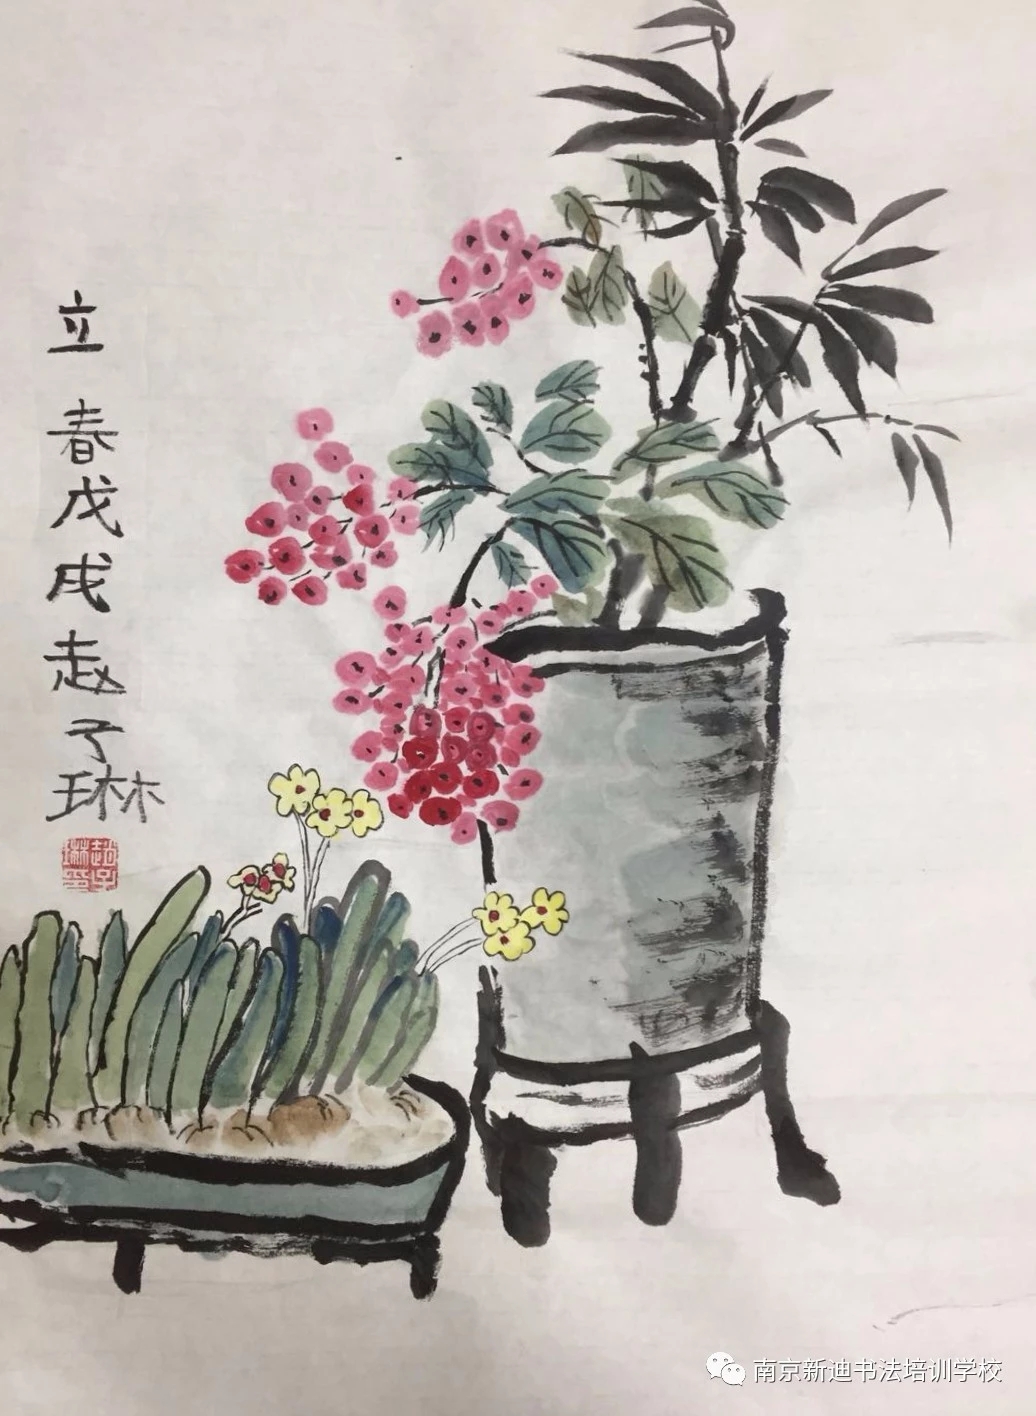 立春戊戌赵子琳
赵子琳印
南京新迪书法培训学校